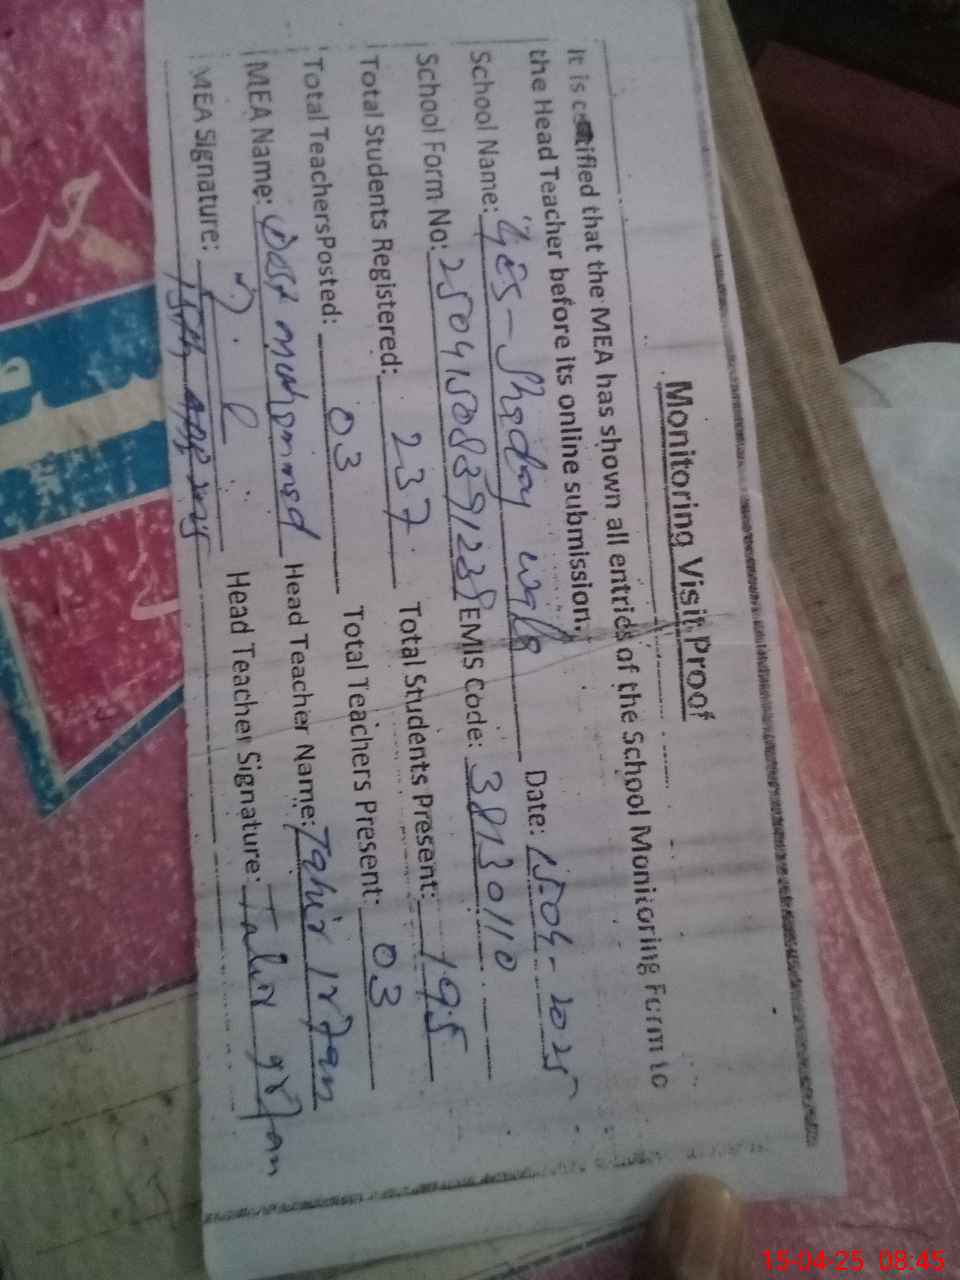 Monitoring Visit Proof
It is certified that the MEA has shown all entries of the School Monitoring Form to
the Head Teacher before its online submission.
School Name: Ges- Shaday wala Date: 15-04-2025
School Form No: EMIS Code: 38130110
Total Students Registered: 237 Total Students Present: 195
Total TeachersPosted: 03 Total Teachers Present: 03
MEA Name: Dost muhammad Head Teacher Name: Tahir Irfan
MEA Signature: Head Teacher Signature: Tahir Irfan
15-04-25 08:45